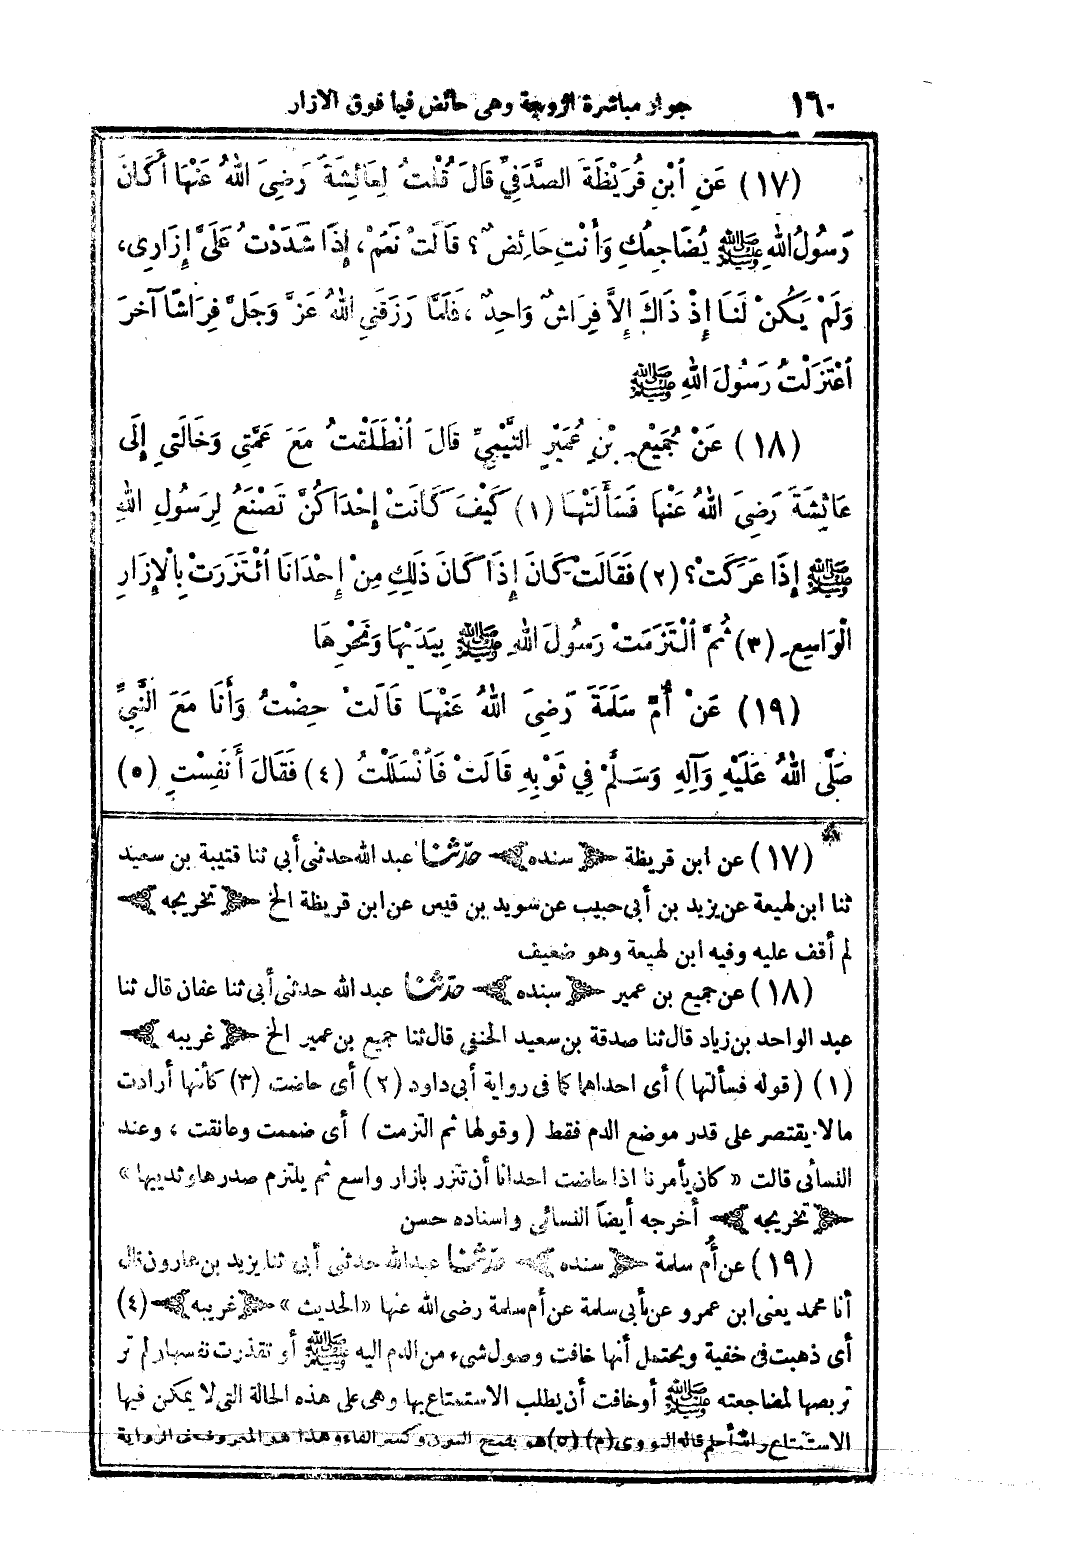 ١٦٠ جواز مباشرة الزوجة وهى حائض فيما فوق الازار
(١٧) عَنِ ٱبْنِ قُرَيْظَةَ الصَّدَفِيِّ قَالَ قُلْتُ لِعَائِشَةَ رَضِىَ اللهُ عَنْهَا أَكَانَ
رَسُولُ اللهِ ﷺ يُضَاجِعُكِ وَأَنْتِ حَائِضٌ؟ قَالَتْ نَعَمْ، إِذَا شَدَدْتُ عَلَىَّ إِزَارِى،
وَلَمْ يَكُنْ لَنَا إِذْ ذَاكَ إِلاَّ فِرَاشٌ وَاحِدٌ، فَلَمَّا رَزَقَنِى اللهُ عَزَّ وَجَلَّ فِرَاشًا آخَرَ
ٱعْتَزَلْتُ رَسُولَ اللهِ ﷺ
(١٨) عَنْ جُمَيْعِ بْنِ عُمَيْرٍ التَّيْمِىِّ قَالَ ٱنْطَلَقْتُ مَعَ عَمَّتِى وَخَالَتِى إِلَى
عَائِشَةَ رَضِىَ اللهُ عَنْهَا فَسَأَلَتْهَا (١) كَيْفَ كَانَتْ إِحْدَاكُنَّ تَصْنَعُ لِرَسُولِ اللهِ
ﷺ إِذَا عَرَكَتْ؟ (٢) فَقَالَتْ كَانَ إِذَا كَانَ ذَلِكِ مِنْ إِحْدَانَا ٱئْتَزَرَتْ بِالْإِزَارِ
الْوَاسِعِ (٣) ثُمَّ ٱلْتَزَمَتْ رَسُولَ اللهِ ﷺ بِيَدَيْهَا وَنَحْرِهَا
(١٩) عَنْ أُمِّ سَلَمَةَ رَضِىَ اللهُ عَنْهَا قَالَتْ حِضْتُ وَأَنَا مَعَ النَّبِىِّ
صَلَّى اللهُ عَلَيْهِ وَآلِهِ وَسَلَّمْ فِي ثَوْبِهِ قَالَتْ فَٱنْسَلَلْتُ (٤) فَقَالَ أَنَفِسْتِ (٥)
(١٧) عن ابن قريظة ﴿سنده﴾ حدّثنا عبد الله حدثنى أبي ثنا قتيبة بن سعيد
ثنا ابن لهيعة عن يزيد بن أبى حبيب عن سويد بن قيس عن ابن قريظة الخ ﴿تخريجه﴾
لم أقف عليه وفيه ابن لهيعة وهو ضعيف
(١٨) عن جميع بن عمير ﴿سنده﴾ حدّثنا عبد الله حدثنى أبي ثنا عفان قال ثنا
عبد الواحد بن زياد قال ثنا صدقة بن سعيد الحنفى قال ثنا جميع بن عمير الخ ﴿غريبه﴾
(١) (قوله فسألتها) أى احداهما كما فى رواية أبى داود (٢) أى حاضت (٣) كأنها أرادت
ما لا يقتصر على قدر موضع الدم فقط (وقولها ثم التزمت) أى ضممت وعانقت، وعند
النسائى قالت « كان يأمرنا اذا حاضت احدانا أن تتزر بازار واسع ثم يلتزم صدرها وثدييها »
﴿تخريجه﴾ أخرجه أيضاً النسائى واسناده حسن
(١٩) عن أُم سلمة ﴿سنده﴾ حدّثنا عبد الله حدثنى أبى ثنا يزيد بن هارون قال
أنا محمد يعنى ابن عمرو عن أبى سلمة عن أم سلمة رضى الله عنها «الحديث» ﴿غريبه﴾ (٤)
أى ذهبت فى خفية ويحتمل أنها خافت وصول شىء من الدم اليه ﷺ أو تقذرت نفسها ولم تر
تربصها لمضاجعته ﷺ أو خافت أن يطلب الاستمتاع بها وهى على هذه الحالة التى لا يمكن فيها
الاستمتاع والله أعلم قاله النووى (م) (٥) هو بفتح النون وكسر الفاء وهذا هو المعروف فى الرواية